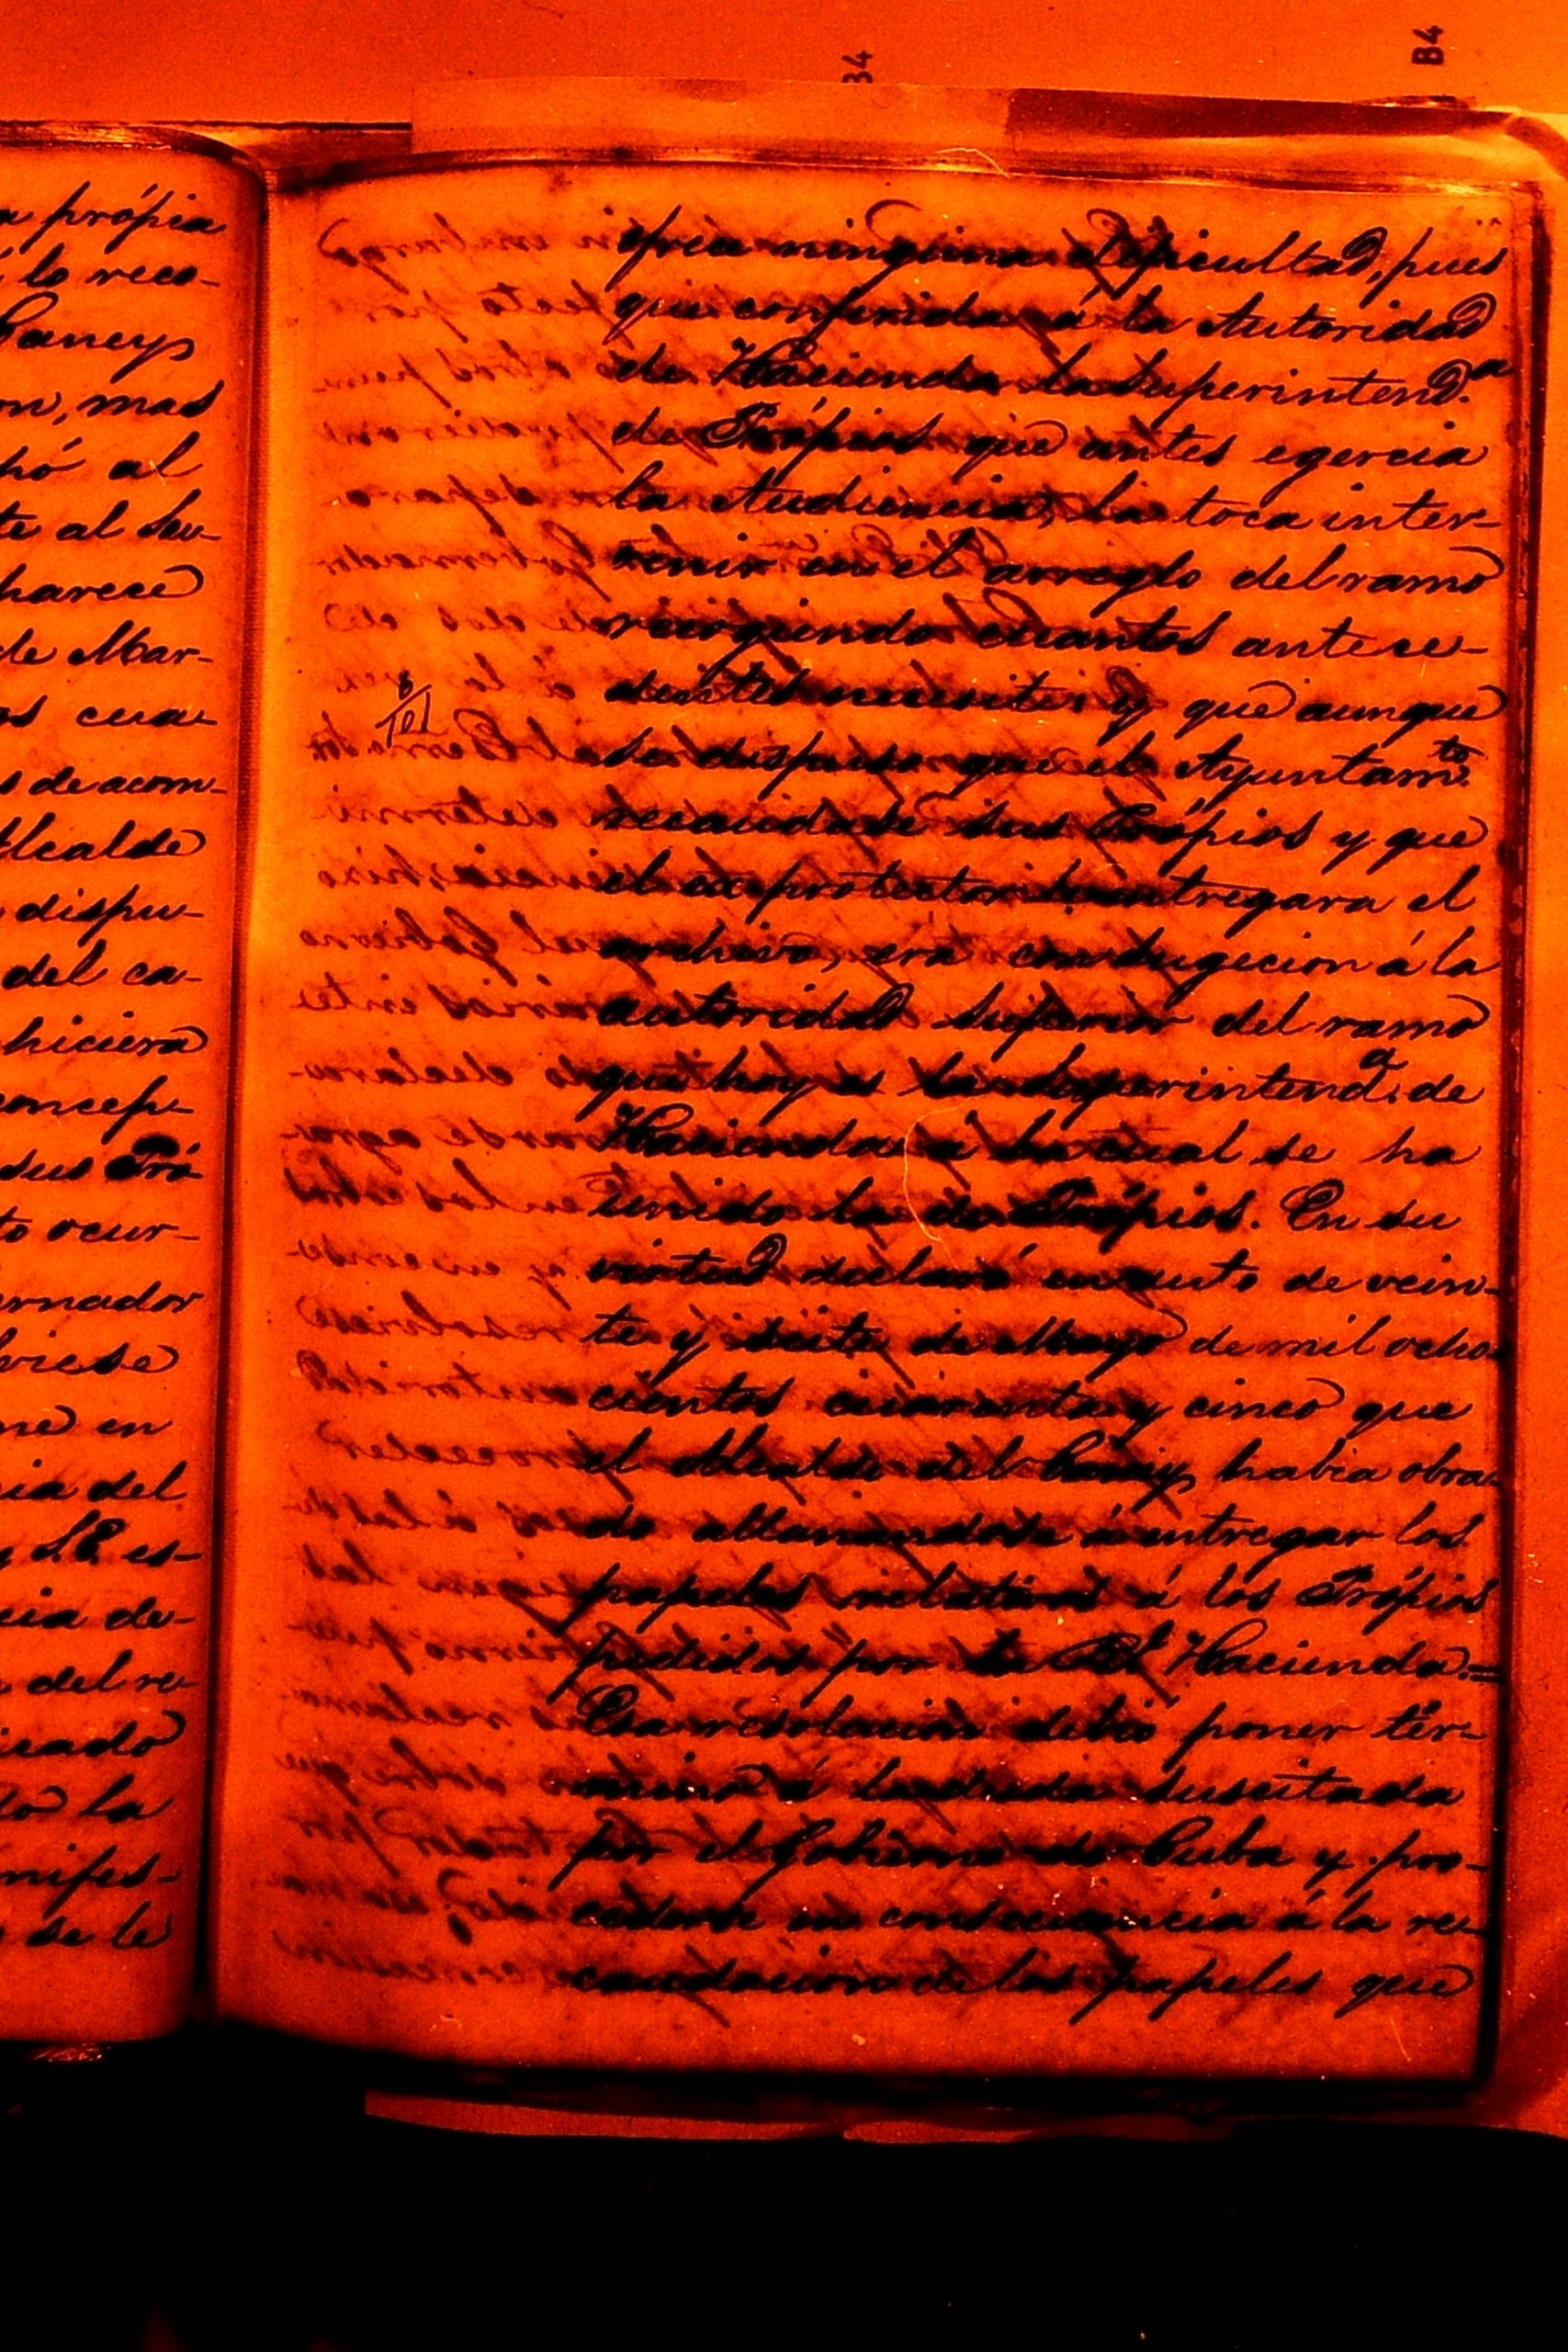 B4
B4
a própia
lo reco-
Caney
on, mas
hó al
te al Su-
parece
de Mar-
os cua-
s de acom-
Alcalde
dispu-
del ca-
hiciera
concep-
sus Pró-
to ocur-
ernador
lviese
me en
cia del
y S.E. es-
cia de-
del re-
icado
do la
nifes-
se le
ofrece ninguna dificultad, pues
que conferida á la Autoridad
de Hacienda la Superintend.a
de Própios que antes egercia
la Audiencia, la toca inter-
venir en el arreglo del ramo
recogiendo cuantos antece-
dentes necesite y que aunque
se dispuso que el Ayuntam.to
recaudase sus Própios y que
el ex-protector le entregara el
archivo, era con sugecion á la
autoridad Superior del ramo
que hoy es la Superintend.a de
Hacienda á la cual se ha
unido la de Própios. En su
virtud declaró en auto de vein-
te y siete de Mayo de mil ocho-
cientos cuarenta y cinco que
el Alcalde del Caney, habia obra-
do allanandose á entregar los
papeles relativos á los Própios
pedidos por la Rl. Hacienda.=
Esa resolucion debió poner tér-
mino á la duda suscitada
por el Gobierno de Cuba y pro-
cederse en consecuencia á la re-
caudacion de los papeles que